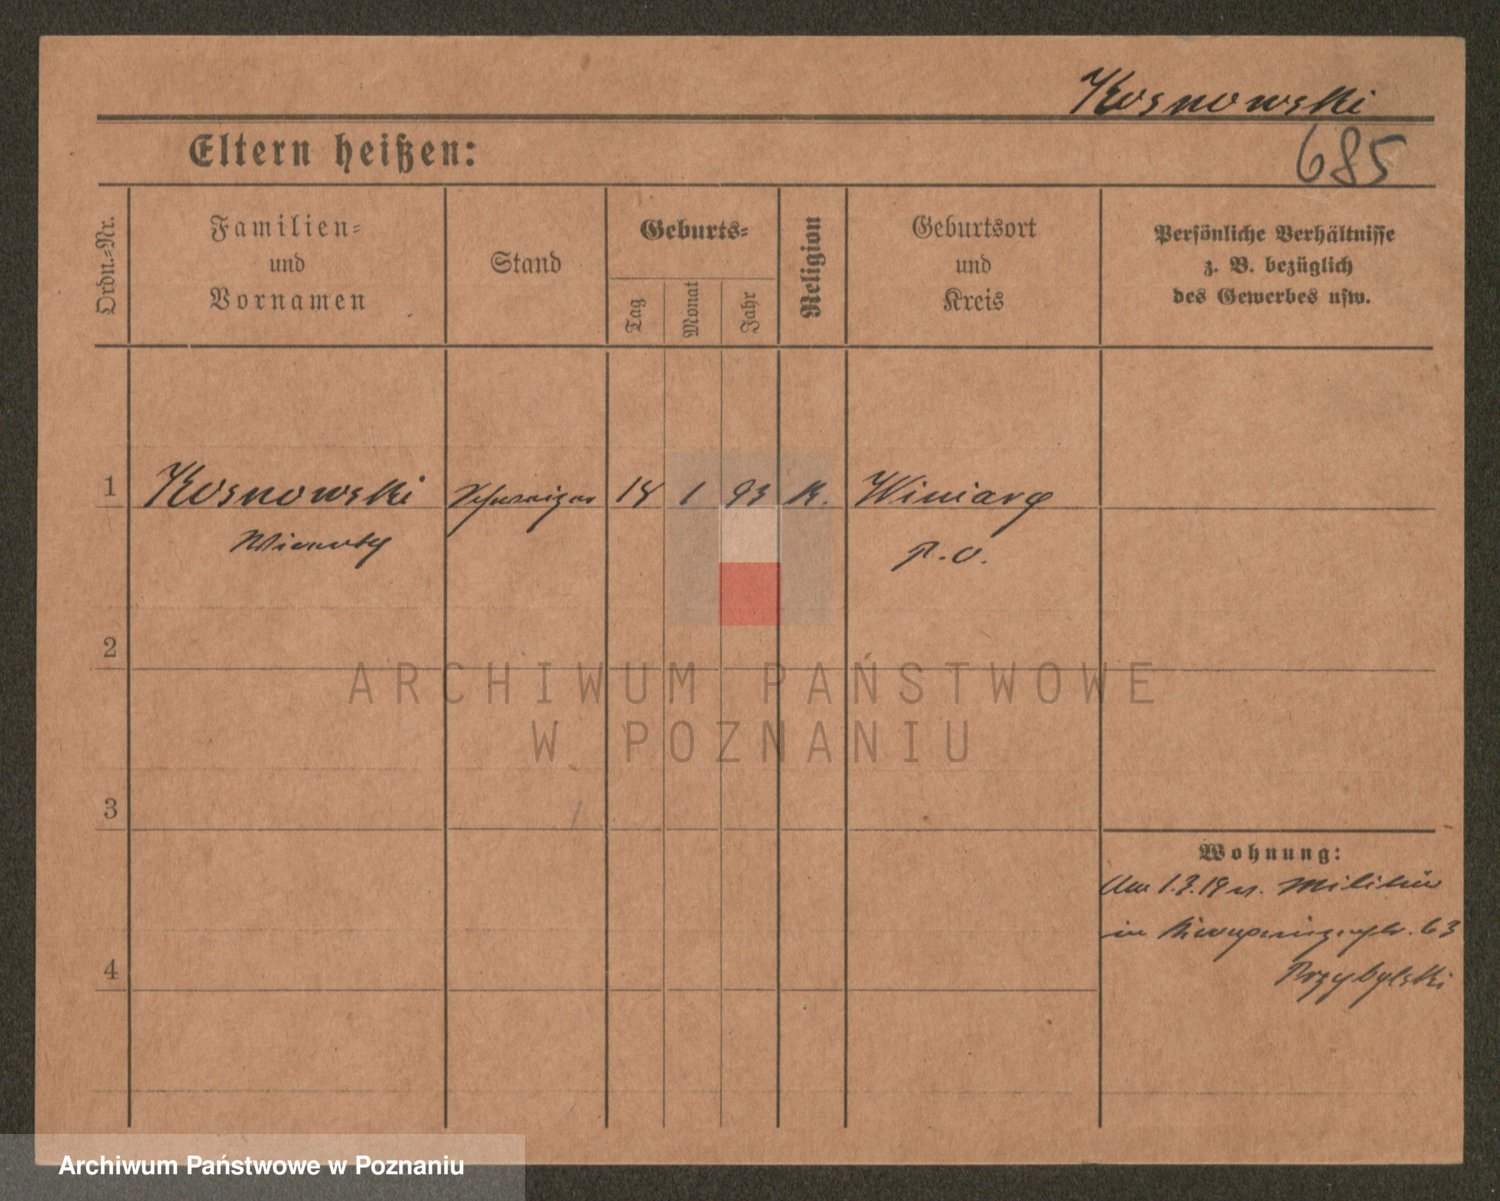 Kosnowski
685
Eltern heißen:
Ordn.-Nr.
Familien-
und
Vornamen
Stand
Geburts-
Tag
Monat
Jahr
Religion
Geburtsort
und
Kreis
Persönliche Verhältnisse
z. B. bezüglich
des Gewerbes usw.
1 Kosnowski Schweizer 1 93 K. Winiary
P. O.
2
3
4
Wohnung:
Am 1.3.19 v. Militär
in 63
Przybylski
ARCHIWUM PAŃSTWOWE
W POZNANIU
Archiwum Państwowe w Poznaniu